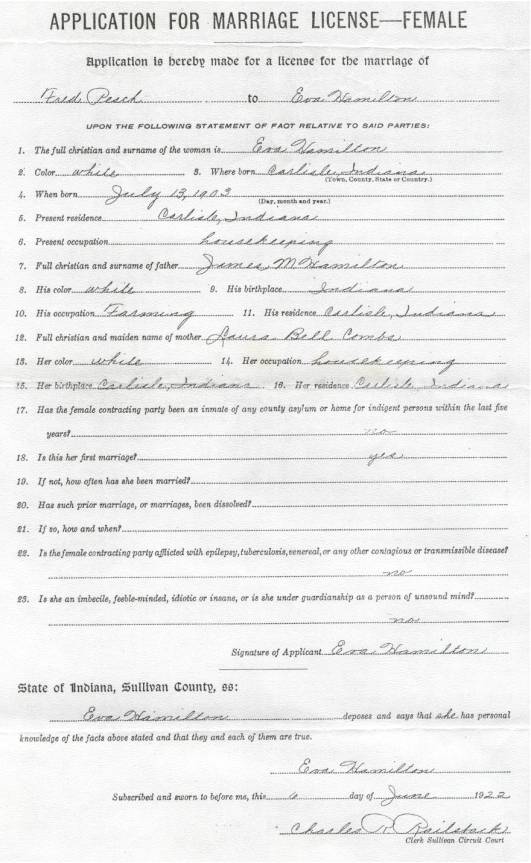 APPLICATION FOR MARRIAGE LICENSE—FEMALE
Application is hereby made for a license for the marriage of
Fred Pesch to Eva Hamilton
UPON THE FOLLOWING STATEMENT OF FACT RELATIVE TO SAID PARTIES:
1. The full christian and surname of the woman is Eva Hamilton
2. Color white 3. Where born Carlisle, Indiana
(Town, County, State or Country.)
4. When born July 13, 1903
(Day, month and year.)
5. Present residence Carlisle, Indiana
6. Present occupation housekeeping
7. Full christian and surname of father James M Hamilton
8. His color white 9. His birthplace Indiana
10. His occupation Farming 11. His residence Carlisle, Indiana
12. Full christian and maiden name of mother Laura Bell Combs
13. Her color white 14. Her occupation housekeeping
15. Her birthplace Carlisle, Indiana 16. Her residence Carlisle Indiana
17. Has the female contracting party been an inmate of any county asylum or home for indigent persons within the last five
years? no
18. Is this her first marriage? yes
19. If not, how often has she been married?
20. Has such prior marriage, or marriages, been dissolved?
21. If so, how and when?
22. Is the female contracting party afflicted with epilepsy, tuberculosis, venereal, or any other contagious or transmissible disease?
no
23. Is she an imbecile, feeble-minded, idiotic or insane, or is she under guardianship as a person of unsound mind?
no
Signature of Applicant Eva Hamilton
State of Indiana, Sullivan County, ss:
Eva Hamilton deposes and says that she has personal
knowledge of the facts above stated and that they and each of them are true.
Eva Hamilton
Subscribed and sworn to before me, this 6 day of June 1922
Charles R Railsback
Clerk Sullivan Circuit Court